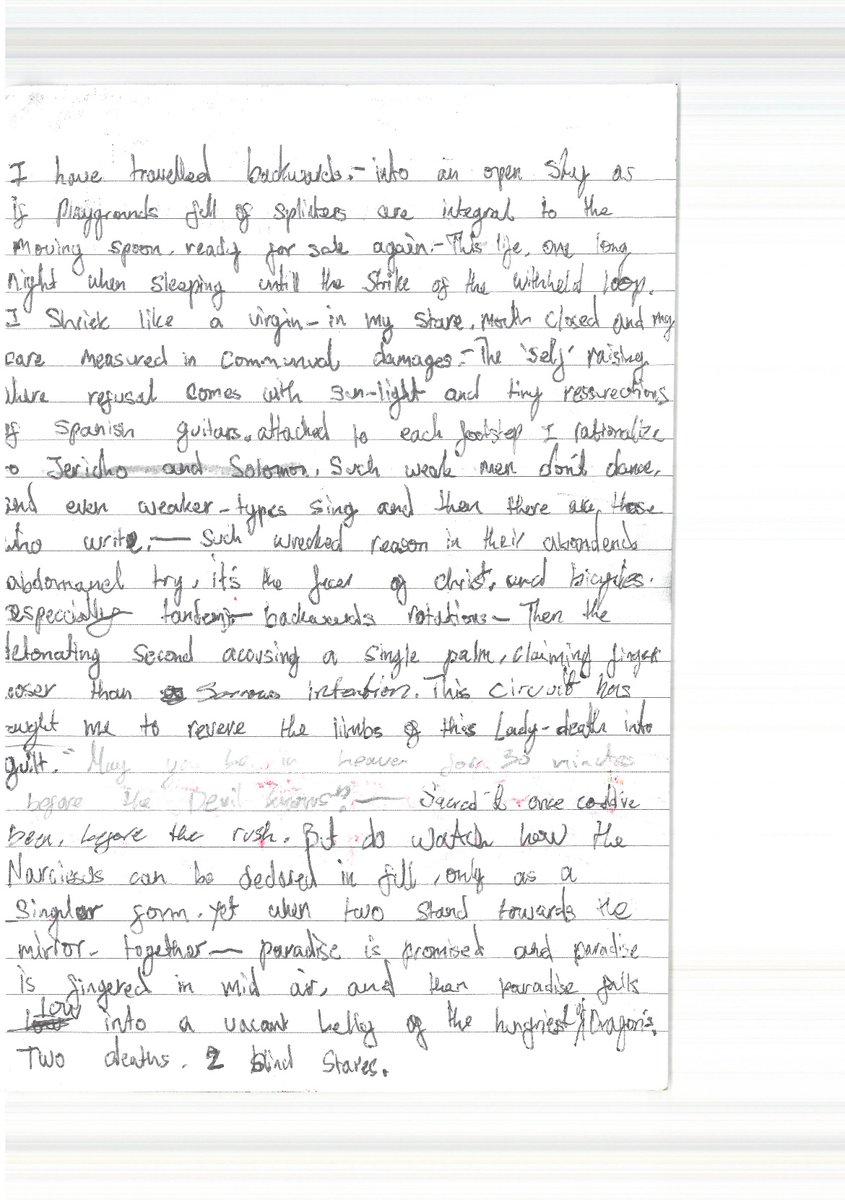 I have travelled backwards.- into an open sky as
if playgrounds full of splinters are integral to the
moving spoon. ready for sale again.- This life, one long
night when sleeping untill the strike of the withheld loop.
I Shriek like a virgin - in my stare, mouth closed and my
care measured in communual damages.- The 'self' raising
where refusal comes with sun-light and tiny ressurections
of Spanish guitars, attached to each footstep I rationalize
to Jericho and Solomon. Such weak men don't dance,
and even weaker-types sing and then there are those
who write. — Such wrecked reason in their
abdomanel try, it's the fear of christ, and bicycles.
Especially tandem - backwards rotations - Then the
detonating second acousing a single palm, claiming finger
than intention. This circuit has
me to revere the limbs of this Lady-death into
guilt. "May you be in heaven for 30 minutes
before the Devil knows" — Sacred I once could've
been, before the rush. But do watch how the
Narcissus can be declared in full, only as a
Singular form. yet when two stand towards the
mirror - together — paradise is promised and paradise
is fingered in mid air, and than paradise falls
low into a vacant belly of the hungriest of Dragon's.
Two deaths. 2 blind stares.